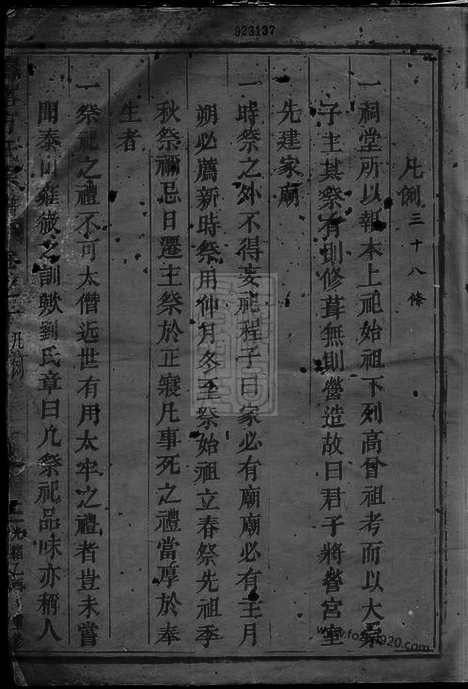 923137
凡例三十八條
一祠堂所以報本上祀始祖下列高曾祖考而以大宗
子主其祭有則修葺無則營造故曰君子將營宮室
先建家廟
一時祭之外不得妄祀程子曰家必有廟廟必有主月
朔必薦新時祭用仲月冬至祭始祖立春祭先祖季
秋祭禰忌日遷主祭於正寢凡事死之禮當厚於奉
生者
一祭祀之禮不可太僭近世有用太牢之禮者豈未嘗
聞泰山雞黍之訓歟劉氏章曰凡祭祀品味亦稱人
凡例